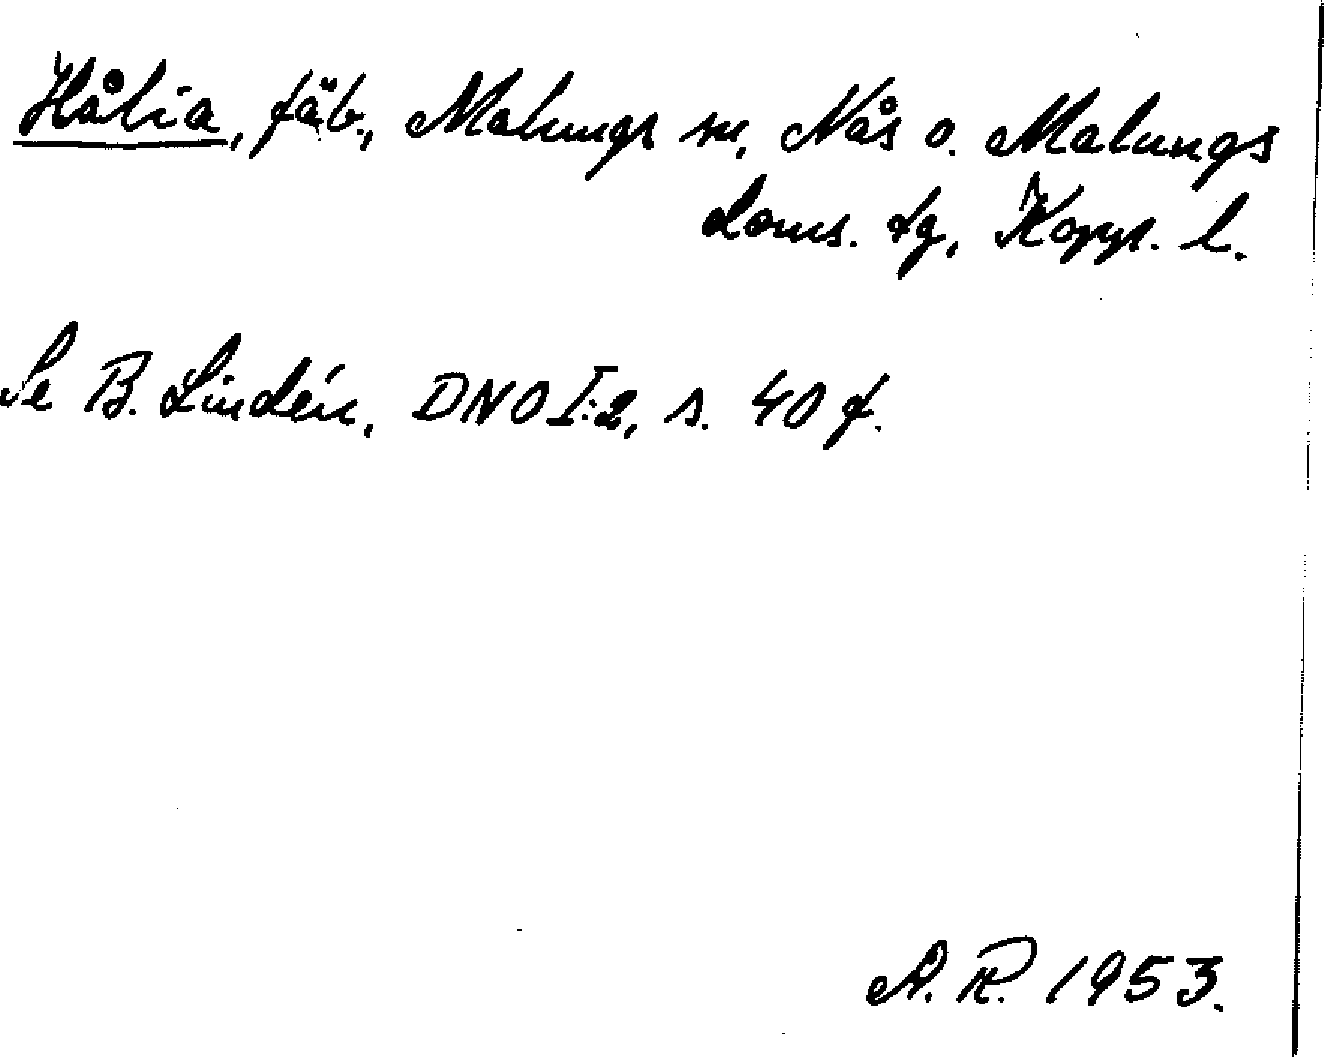 Hålia, fäb., Malungs sn, Nås o. Malungs
doms. fg, Kopp. l.
Se B. Lindén, DNO I:2, s. 40 f.
A. R. 1953.